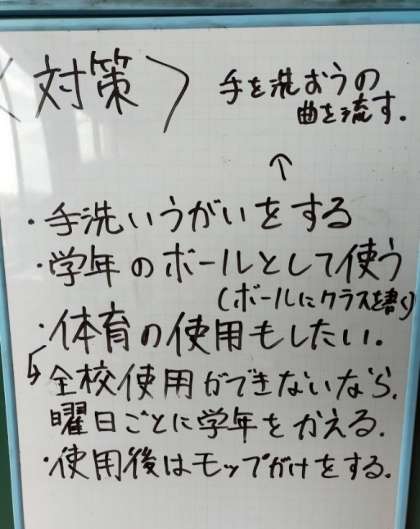 〈対策〉
手を洗おうの
曲を流す.
↑
・手洗いうがいをする
・学年のボールとして使う
(ボールにクラスを書く)
・体育の使用もしたい.
↳全校使用ができないなら.
曜日ごとに学年をかえる.
・使用後はモップがけをする.